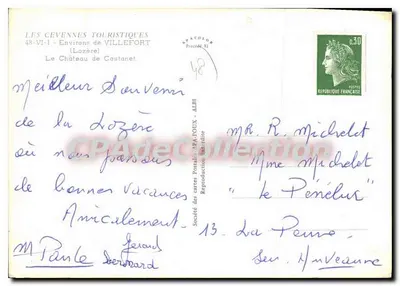 LES CEVENNES TOURISTIQUES
48-VI-1 - Environs de VILLEFORT
(Lozère)
Le Château de Castanet
APA-POUX
48
0,30
POSTES
REPUBLIQUE FRANÇAISE
Meilleur Souvenir
de la Lozère
où nous passons
de bonnes vacances
Amicalement.
Gérard
M Paule Bernard
Société des cartes Postales APA-POUX - ALBI
Reproduction interdite
CPADeCollection
MR. R. Michelet
Mme Michelet
" le Pénélux "
13. La Penne
Sur. Huveaune